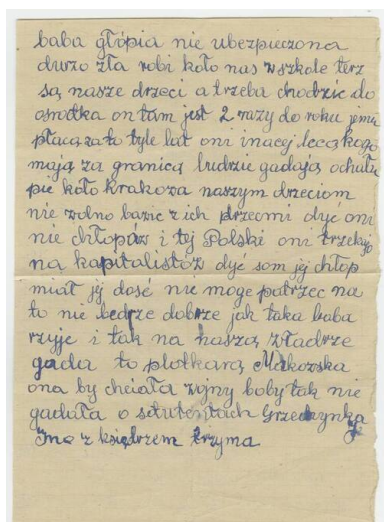 baba głópia nie ubezpieczona
durzo zła robi koło nas w szkole terz
są nasze drzeci a trzeba chodzić do
ośrodka on tam jest 2 razy do roku jemu
płacą za to tyle lat oni inacej lecą kogo
mają za granicą ludzie gadają o chału
pie koło krakowa naszym drzeciom
nie wolno bazić z ich drzecmi dyć oni
nie chłopów i tej Polski oni trzekają
na kapitalistów dyć som jej chłop
miał jej dość nie moge patrzec na
to nie będzie dobrze jak taka baba
rzyje i tak na naszą władrze
gada to plotkarą Makozska
ona by chciała wojny boby tak nie
gadała o sztutentach Grzeszynka
Ino z księdrzem trzyma